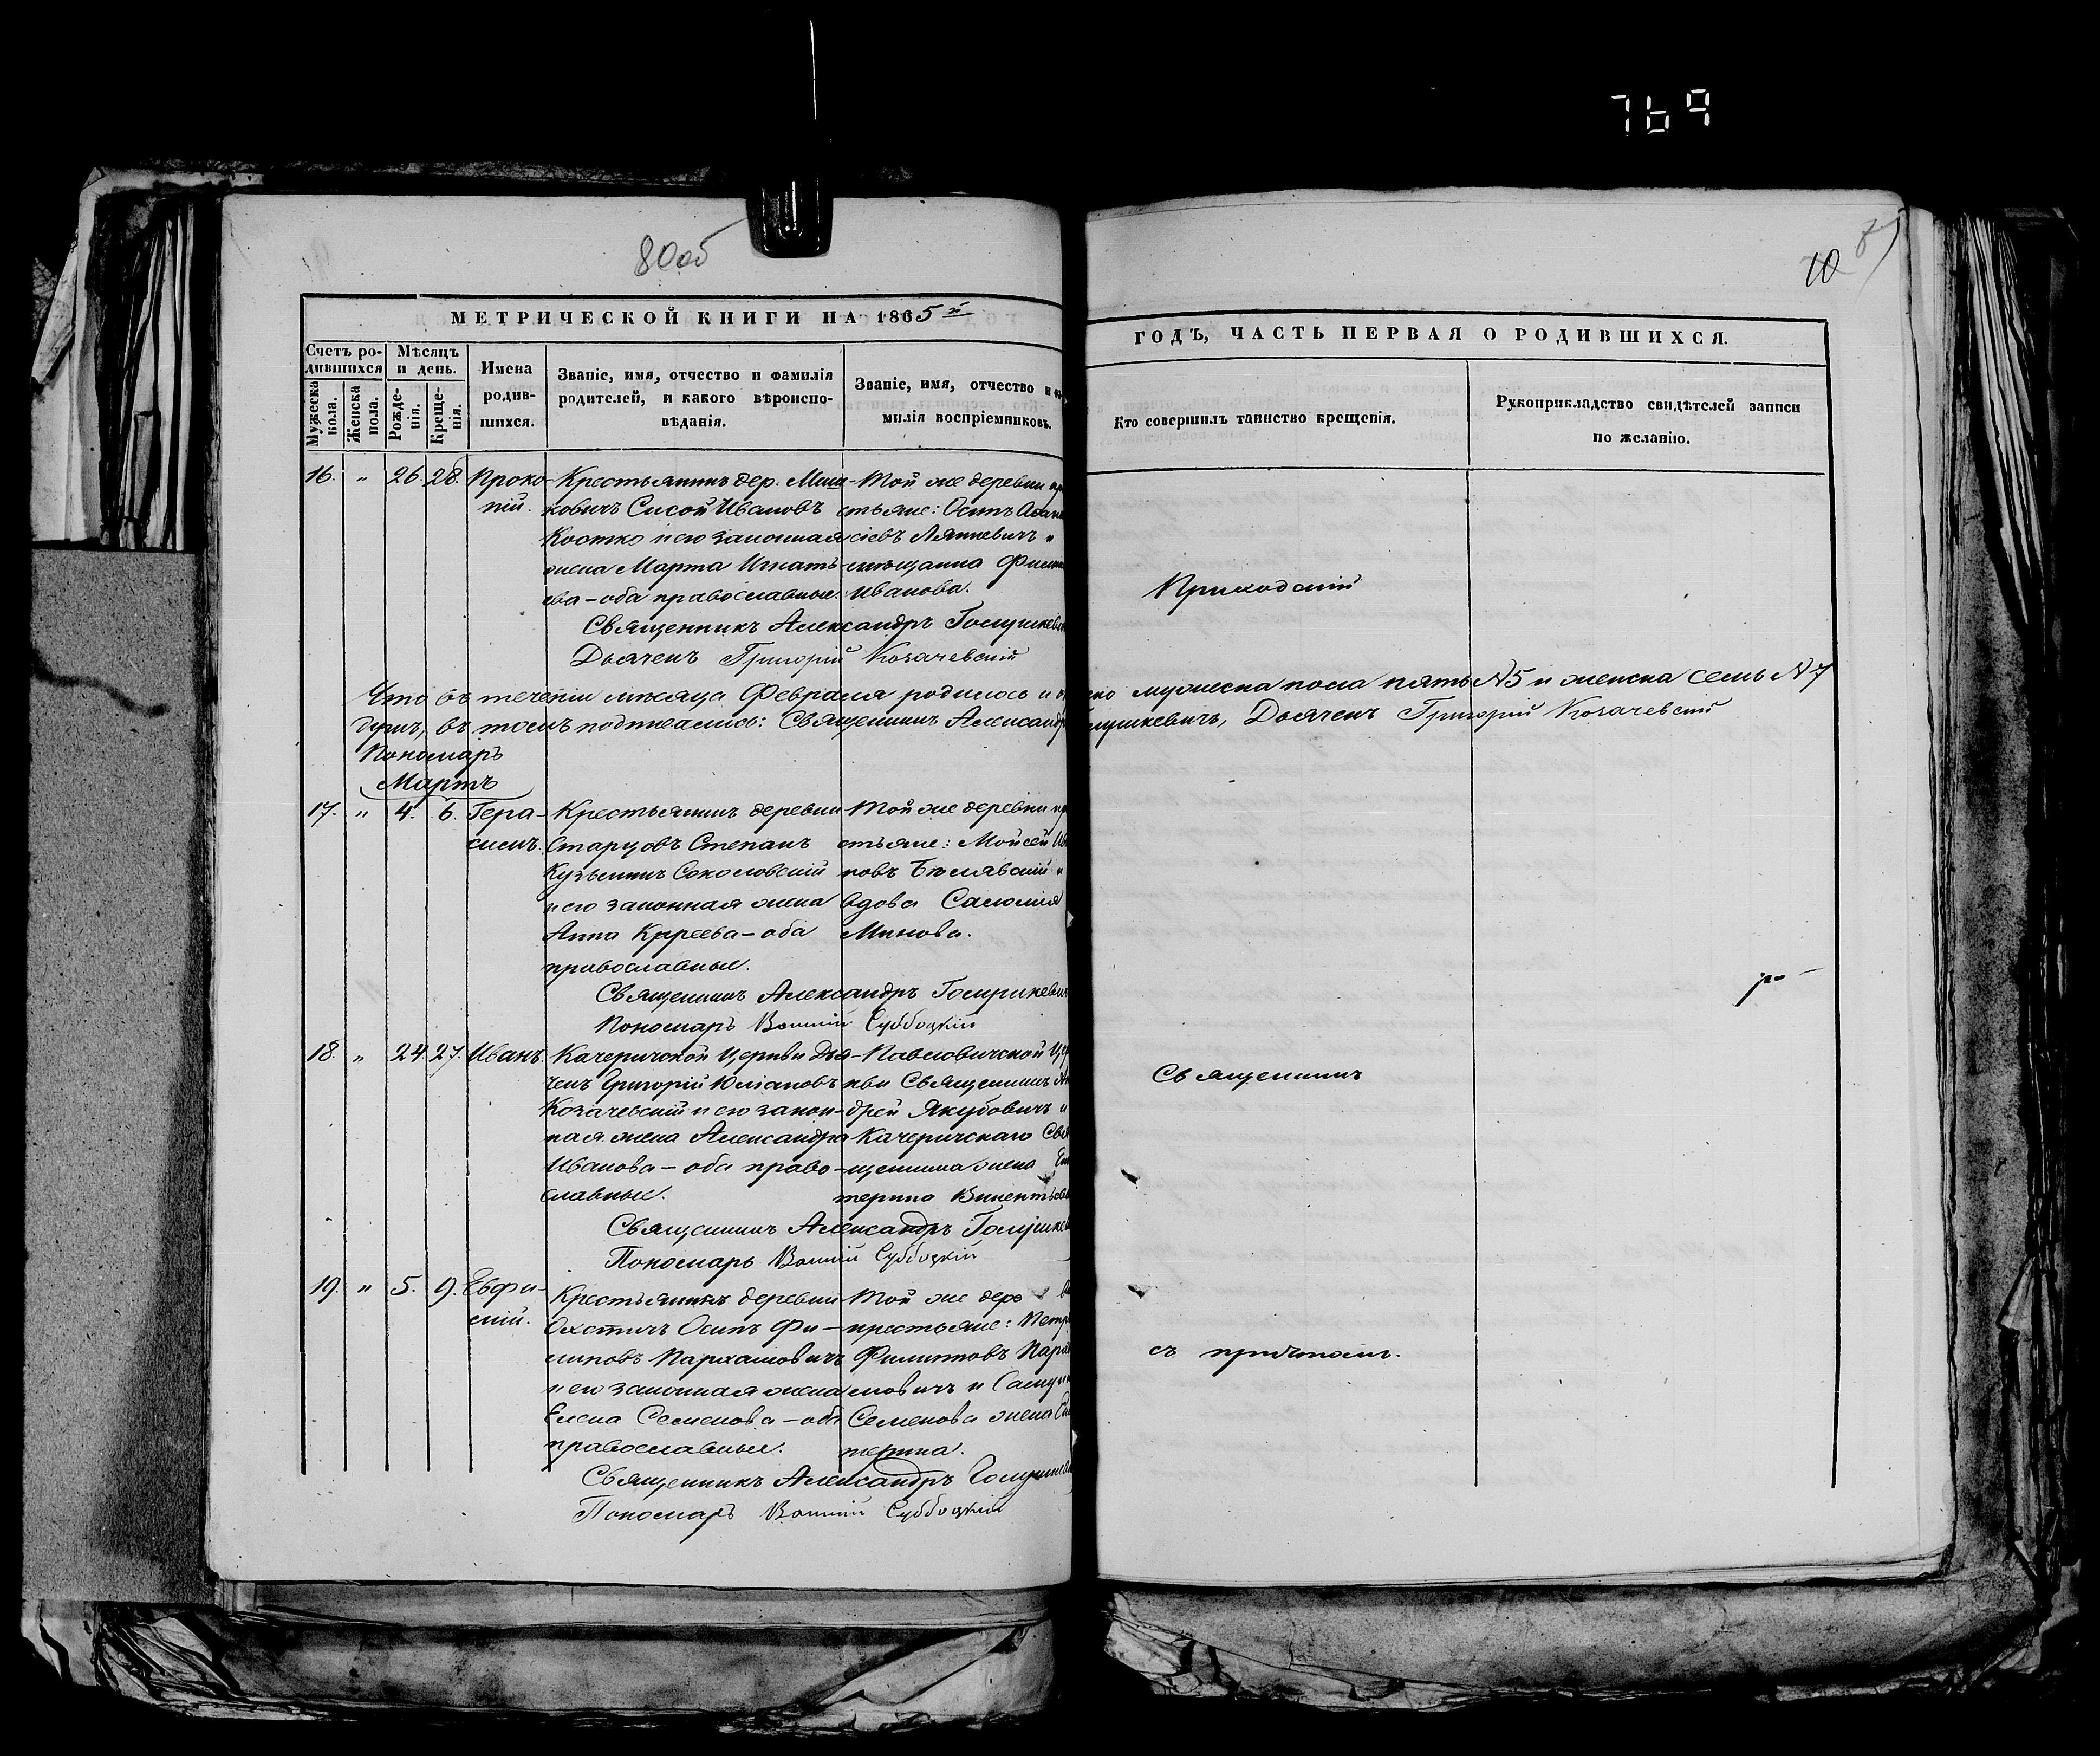 769
80об
10
МЕТРИЧЕСКОЙ КНИГИ НА 1865й
ГОДЪ, ЧАСТЬ ПЕРВАЯ О РОДИВШИХСЯ.
Счетъ ро-
дившихся
Мужеска
пола.
Женска
пола.
Мѣсяцъ
и день.
Рожде-
нія.
Креще-
нія.
Имена
родив-
шихся.
Званіе, имя, отчество и фамилія
родителей, и какого вѣроиспо-
вѣданія.
Званіе, имя, отчество и фа-
милія воспріемниковъ.
Кто совершилъ таинство крещенія.
Рукоприкладство свидѣтелей записи
по желанію.
16. " 26. 28. Проко-
пій.
Крестьянинъ дер.
ковичъ Сисой Ивановъ
Костко и его законная
жена Марта Игнать-
ева – оба православные.
Той же деревни кре
стьяне: Осипъ Афана
сіевъ Ляшкевичъ и
мѣщанка
Иванова.
Священникъ Александръ Голушкевич
Дьячекъ Григорій Козачевскій
Приходскій
Что въ теченіи мѣсяца Февраля родилось и ено мужеска пола пять №5 и женска семь №7
душъ, въ томъ подписались: Священникъ Александръ лушкевичъ, Дьячекъ Григорій Козачевскій
Пономарь
Мартъ
17. " 4. 6. Гера-
симъ.
Крестьянинъ деревни
Старцовъ Степанъ
Кузьминъ Соколовскій
и его законная жена
Анна Киреева – оба
православные.
Той же деревни кре
стьяне: Мойсей Ива
новъ Бѣлявскій и
вдова Саломія
Минова.
Священникъ Александръ Голушкевич
Пономарь Суббоцкій
18. " 24 27. Иванъ.
Качеричской Церкви Дья-
чекъ Григорій Юліановъ
Козачевскій и его закон-
ная жена Александра
Иванова – оба право-
славные.
Павловичской Цер
кви Священникъ Ан
дрей Якубовичъ и
Качеричскаго Свя
щенника жена Ека
терина Викентьева
Священникъ Александръ Голушкев
Пономарь Суббоцкій
Священникъ
19. " 5. 9. Евфи-
мій.
Крестьянинъ деревни
Охотичъ Осипъ Фи-
липовъ Пархамовичъ
и его законная жена
Елена Семенова – оба
православные.
Той же дере в
крестьяне: Петр
Филиповъ Парха
мовичъ и
Семенова жена Ека
терина.
Священникъ Александръ Голушкев
Пономарь Суббоцкій
съ причтомъ.